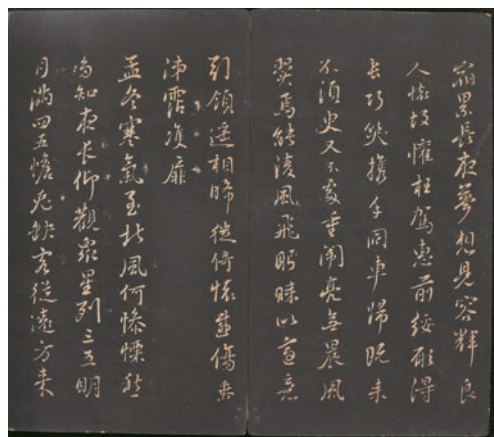 宿累長夜夢想見容輝良
人惟古懽枉駕惠前綏願得
長巧笑攜手同車歸既來
不須臾又不處重闈亮無晨風
翼焉能凌風飛眄睞以適意
引領遙相睎徙倚懷感傷垂
涕霑雙扉
孟冬寒氣至北風何慘慄愁
多知夜長仰觀眾星列三五明
月滿四五蟾兔缺客從遠方來